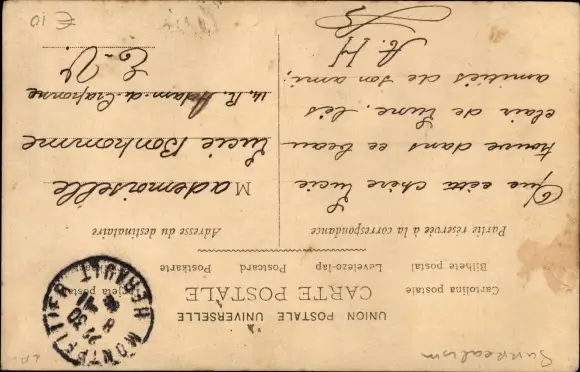 UNION POSTALE UNIVERSELLE
CARTE POSTALE
Cartolina postale
Bilhete postal
Levelezo-lap
Postcard
Postkarte
Tarjeta postal
Partie réservée à la correspondance
Adresse du destinataire
Que cette chère Lucie
trouve dans ce beau
clair de Lune, les
amitiés de son ami,
A. H
Mademoiselle
Lucie Bonhomme
14, R. Adam-de-Craponne
E-V.
MONTPELLIER HERAULT
Surrealism
€ 10